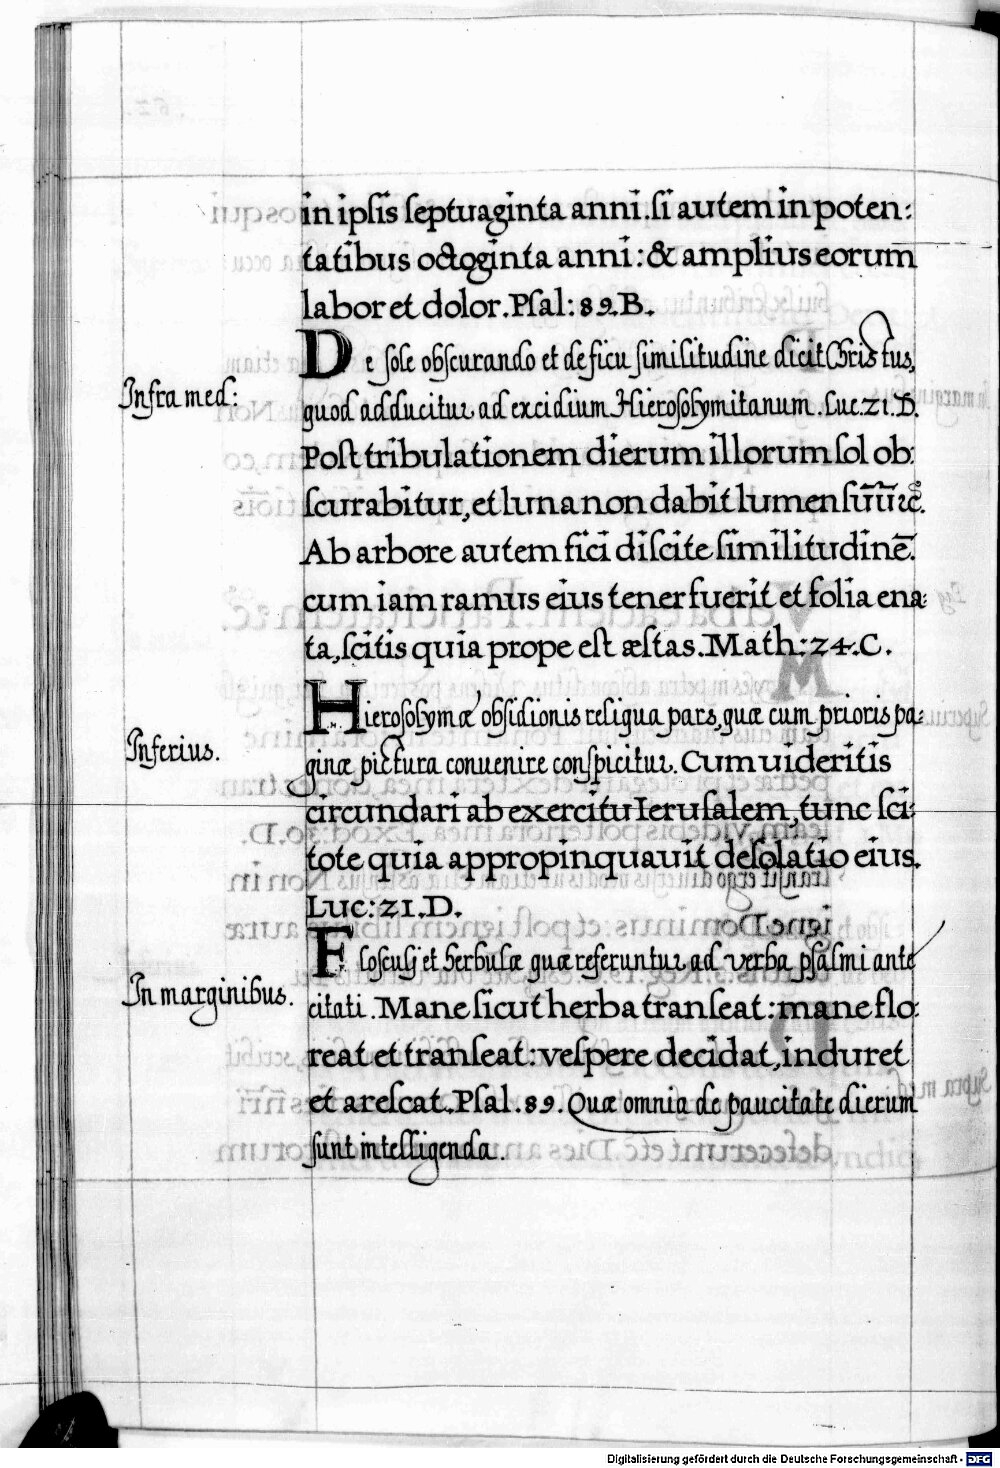 in ipsis septuaginta anni. si autem in poten:
tatibus octoginta anni: & amplius eorum
labor et dolor. Psal: 89. B.
De sole obscurando et de ficu similitudine dicit Christus,
Infra med:
quod adducitur ad excidium Hierosolymitanum. Luc. 21. D.
Post tribulationem dierum illorum sol ob:
scurabitur, et luna non dabit lumen suũ ꝛc̃.
Ab arbore autem fici discite similitudinẽ:
cum iam ramus eius tener fuerit et folia ena:
ta, scitis quia prope est æstas. Math: 24. C.
Hierosolymæ obsidionis reliqua pars, quæ cum prioris pa:
Inferius.
ginæ pictura conuenire conspicitur. Cum uideritis
circundari ab exercitu Ierusalem, tunc sci:
tote quia appropinquauit desolatio eius.
Luc: 21. D.
Flosculj et herbulæ quæ referuntur ad verba psalmi ante
In marginibus.
citati. Mane sicut herba transeat: mane flo:
reat et transeat: vespere decidat, induret
et arescat. Psal. 89. Quæ omnia de paucitate dierum
sunt intelligenda.
Digitalisierung gefördert durch die Deutsche Forschungsgemeinschaft - DFG